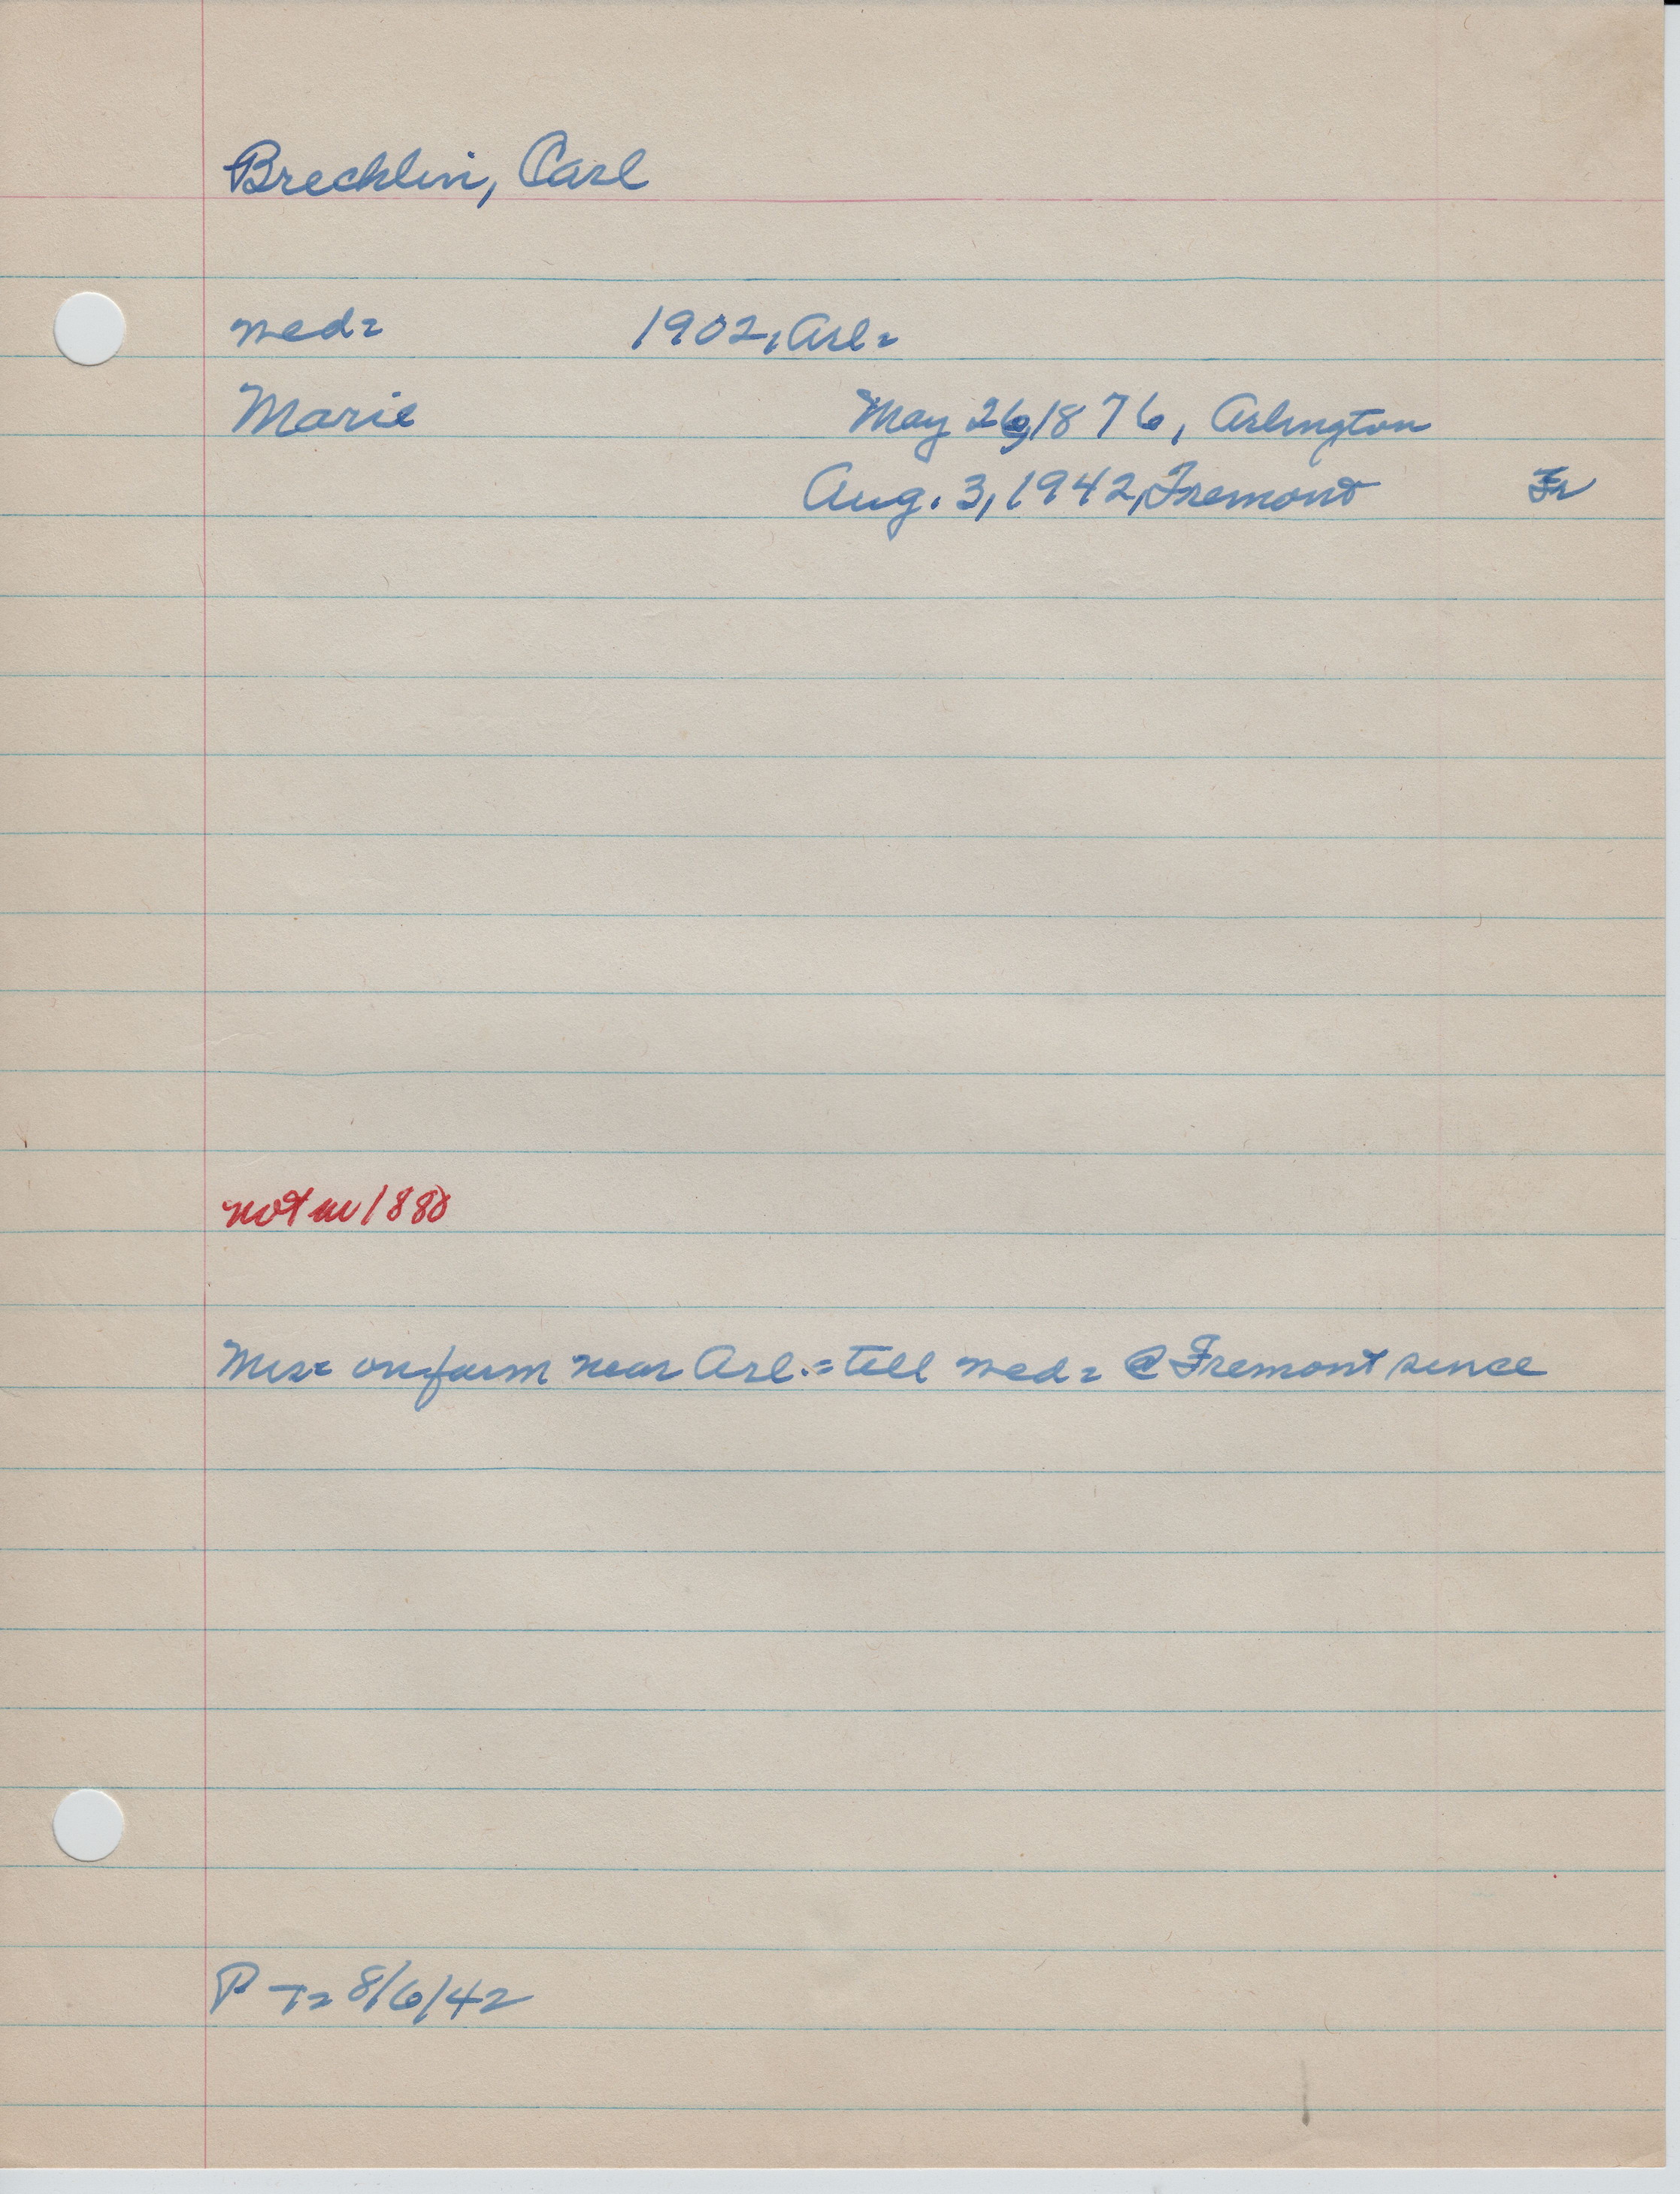 Brecklin, Carl
wed= 1902, Arl=
Marie May 26, 1876, Arlington
Aug. 3, 1942, Fremont Fr
not in 1880
Mrs= on farm near Arl.= till wed= @ Fremont since
P T= 8/6/42